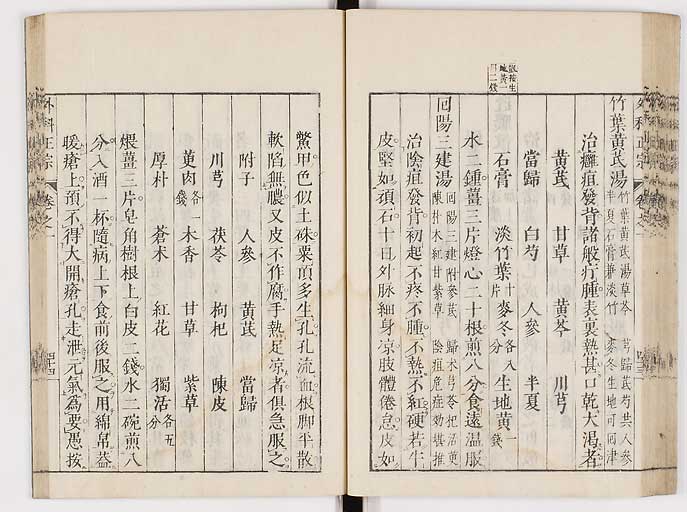 外科正宗
卷之一
竹葉黃芪湯
竹葉黃芪湯草苓 芎歸芪芍共人參
半夏石膏兼淡竹 麥冬生地可回津
治癰疽發背諸般疔腫表裏熱甚口乾大渴者
黃芪 甘草 黃芩 川芎
當歸 白芍 人參 半夏
石膏 淡竹葉十片 麥冬各八分 生地黃一錢
水二鍾薑三片燈心二十根煎八分食遠溫服
回陽三建湯
回陽三建附參芪 歸木芎苓杞活萸
陳朴木紅甘紫草 陰疽危症効堪推
治陰疽發背初起不疼不腫不熱不紅硬若牛
皮堅如頑石十日外脉細身涼肢體倦怠皮如
鱉甲色似土硃粟頂多生孔孔流血根脚平散
軟陷無膿又皮不作腐手熱足涼者俱急服之
附子 人參 黃芪 當歸
川芎 茯苓 枸杞 陳皮
萸肉各一錢 木香 甘草 紫草
厚朴 蒼术 紅花 獨活各五分
煨薑三片皂角樹根上白皮二錢水二碗煎八
分入酒一杯隨病上下食前後服之用綿帛蓋
暖瘡上預不得大開瘡孔走泄元氣為要愚按
外科正宗
卷之一